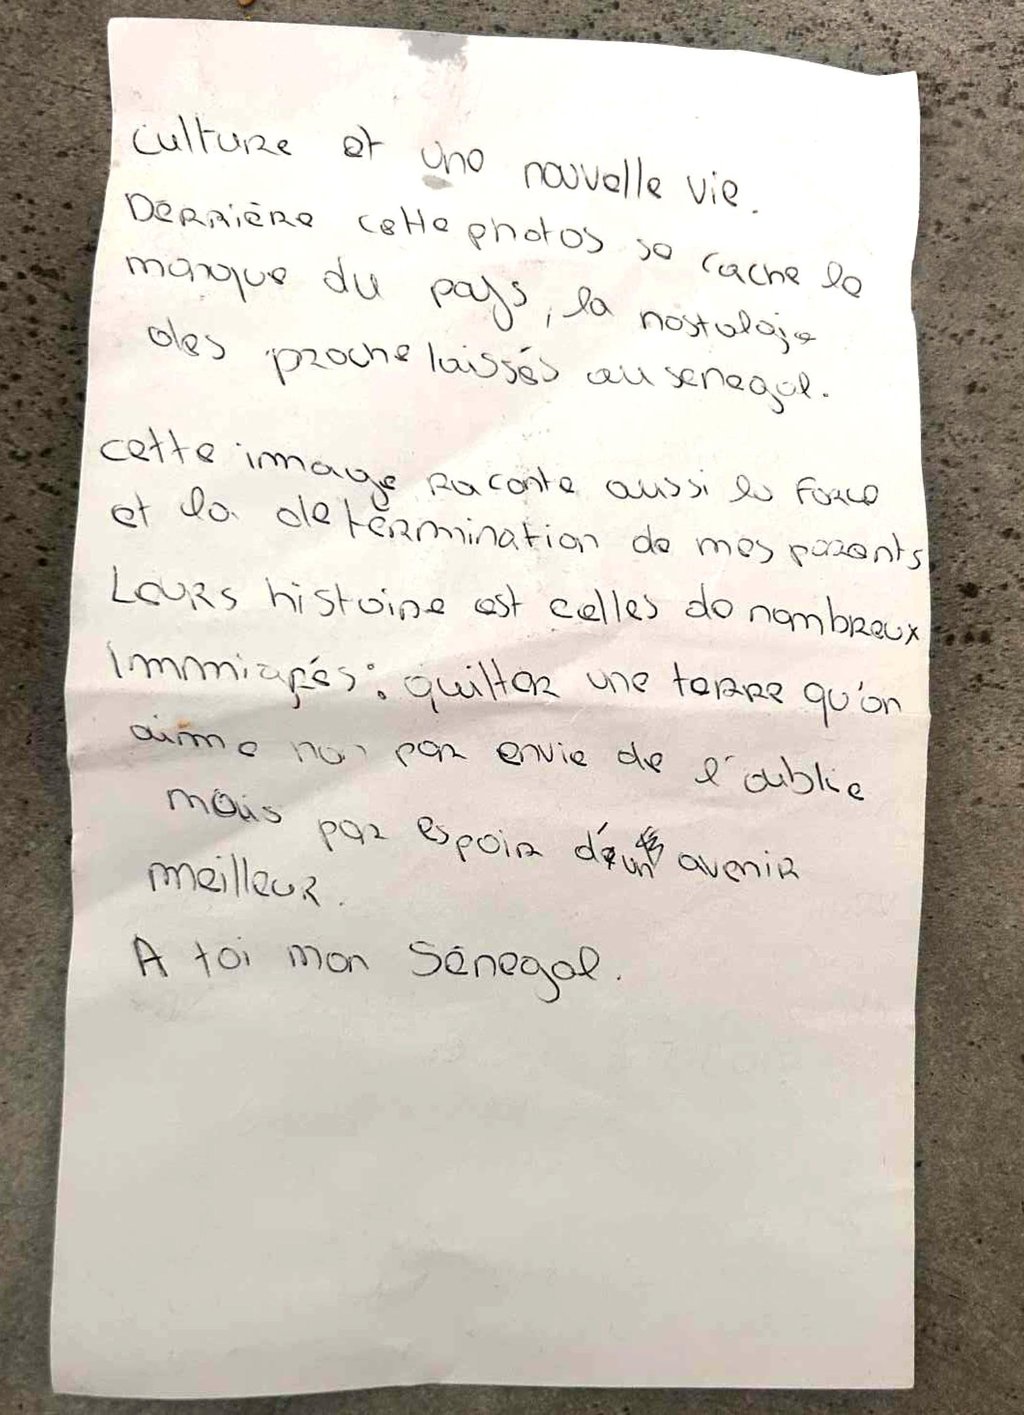 culture et une nouvelle vie.
Derrière cette photos se cache le
manque du pays, la nostalgie
des proche laissés au senegal.
cette immage raconte aussi la force
et la detérmination de mes parents
Leurs histoire est celles de nombreux
Immigrés : quitter une terre qu'on
aime non par envie de l'oublie
mais par espoir d'un avenir
meilleur.
A toi mon Sénegal.